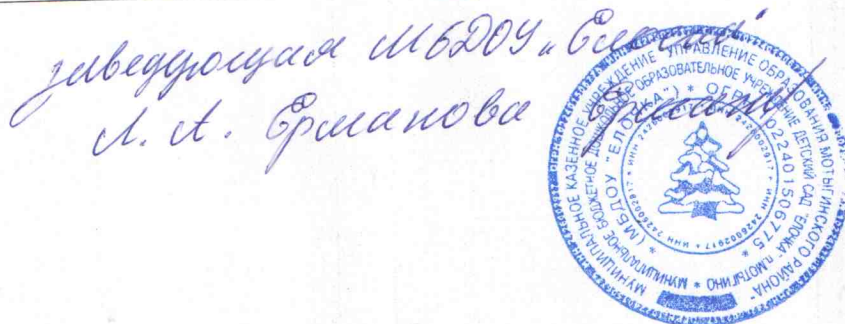 заведующая МБДОУ „Елочка"
Л. А. Ерманова
МУНИЦИПАЛЬНОЕ КАЗЕННОЕ УЧРЕЖДЕНИЕ "УПРАВЛЕНИЕ ОБРАЗОВАНИЯ МОТЫГИНСКОГО РАЙОНА"
МУНИЦИПАЛЬНОЕ БЮДЖЕТНОЕ ДОШКОЛЬНОЕ ОБРАЗОВАТЕЛЬНОЕ УЧРЕЖДЕНИЕ ДЕТСКИЙ САД "ЕЛОЧКА" п.МОТЫГИНО *
* (МБДОУ "ЕЛОЧКА") * ОГРН 1022401506775 *
* ИНН 2426002917 * ИНН 2426002917 * ИНН 2426002917